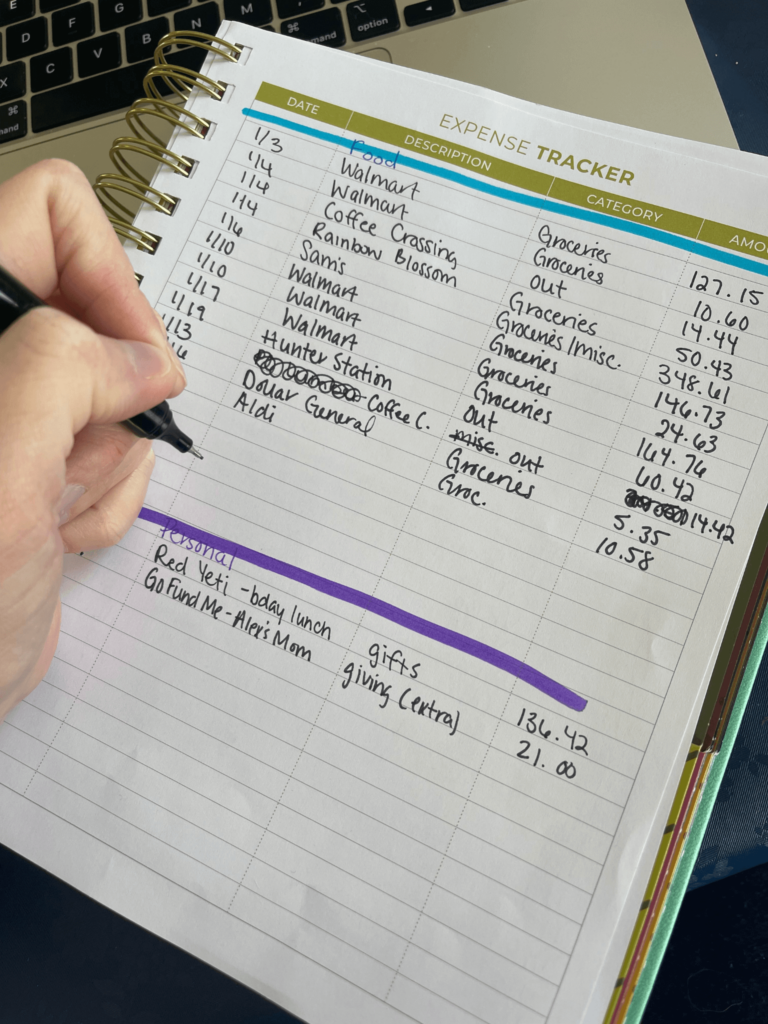 E F G H N M
D V B
X C
⌘ command
⌥ option
command
EXPENSE TRACKER
DATE DESCRIPTION CATEGORY AMO
Food
1/3 Walmart Groceries 127.15
1/4 Walmart Groceries 10.60
1/4 Coffee Crossing Out 14.44
1/4 Rainbow Blossom Groceries 50.43
1/6 Sam's Groceries/misc. 348.61
1/10 Walmart Groceries 146.73
1/10 Walmart Groceries 24.63
1/17 Walmart Groceries 164.76
1/19 Hunter Station Out 60.42
1/13 - Coffee C. misc. out 14.42
Dollar General Groceries 5.35
Aldi Groc. 10.58
Personal
Red Yeti - bday lunch gifts 136.42
Go Fund Me - Alex's Mom giving (extra) 21.00